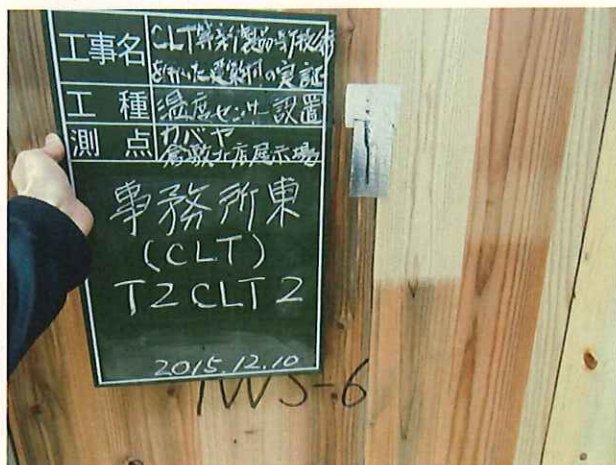 工事名
CLT等新製品新技術
を利用した建築物の実証
工種
温度センサー設置
測点
カバヤ
倉敷北店展示場
事務所東
(CLT)
T2CLT2
2015.12.10
IWS-6